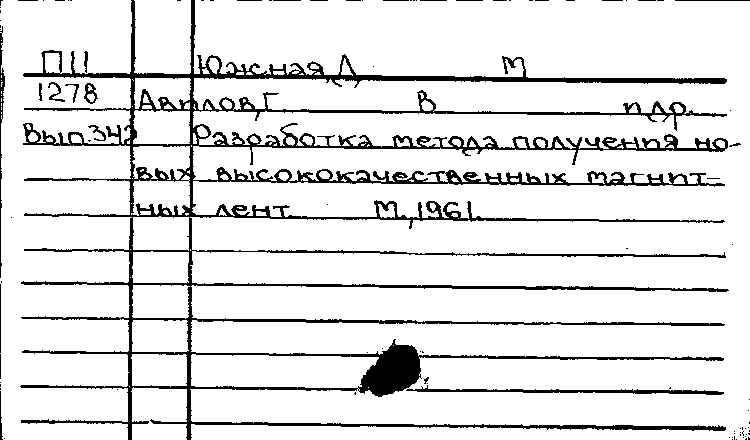 П11 Южная, Д. М
1278 Авилов, Г. В и др.
Вып.342 Разработка метода получения но-
вых высококачественных магнит-
ных лент. М., 1961.